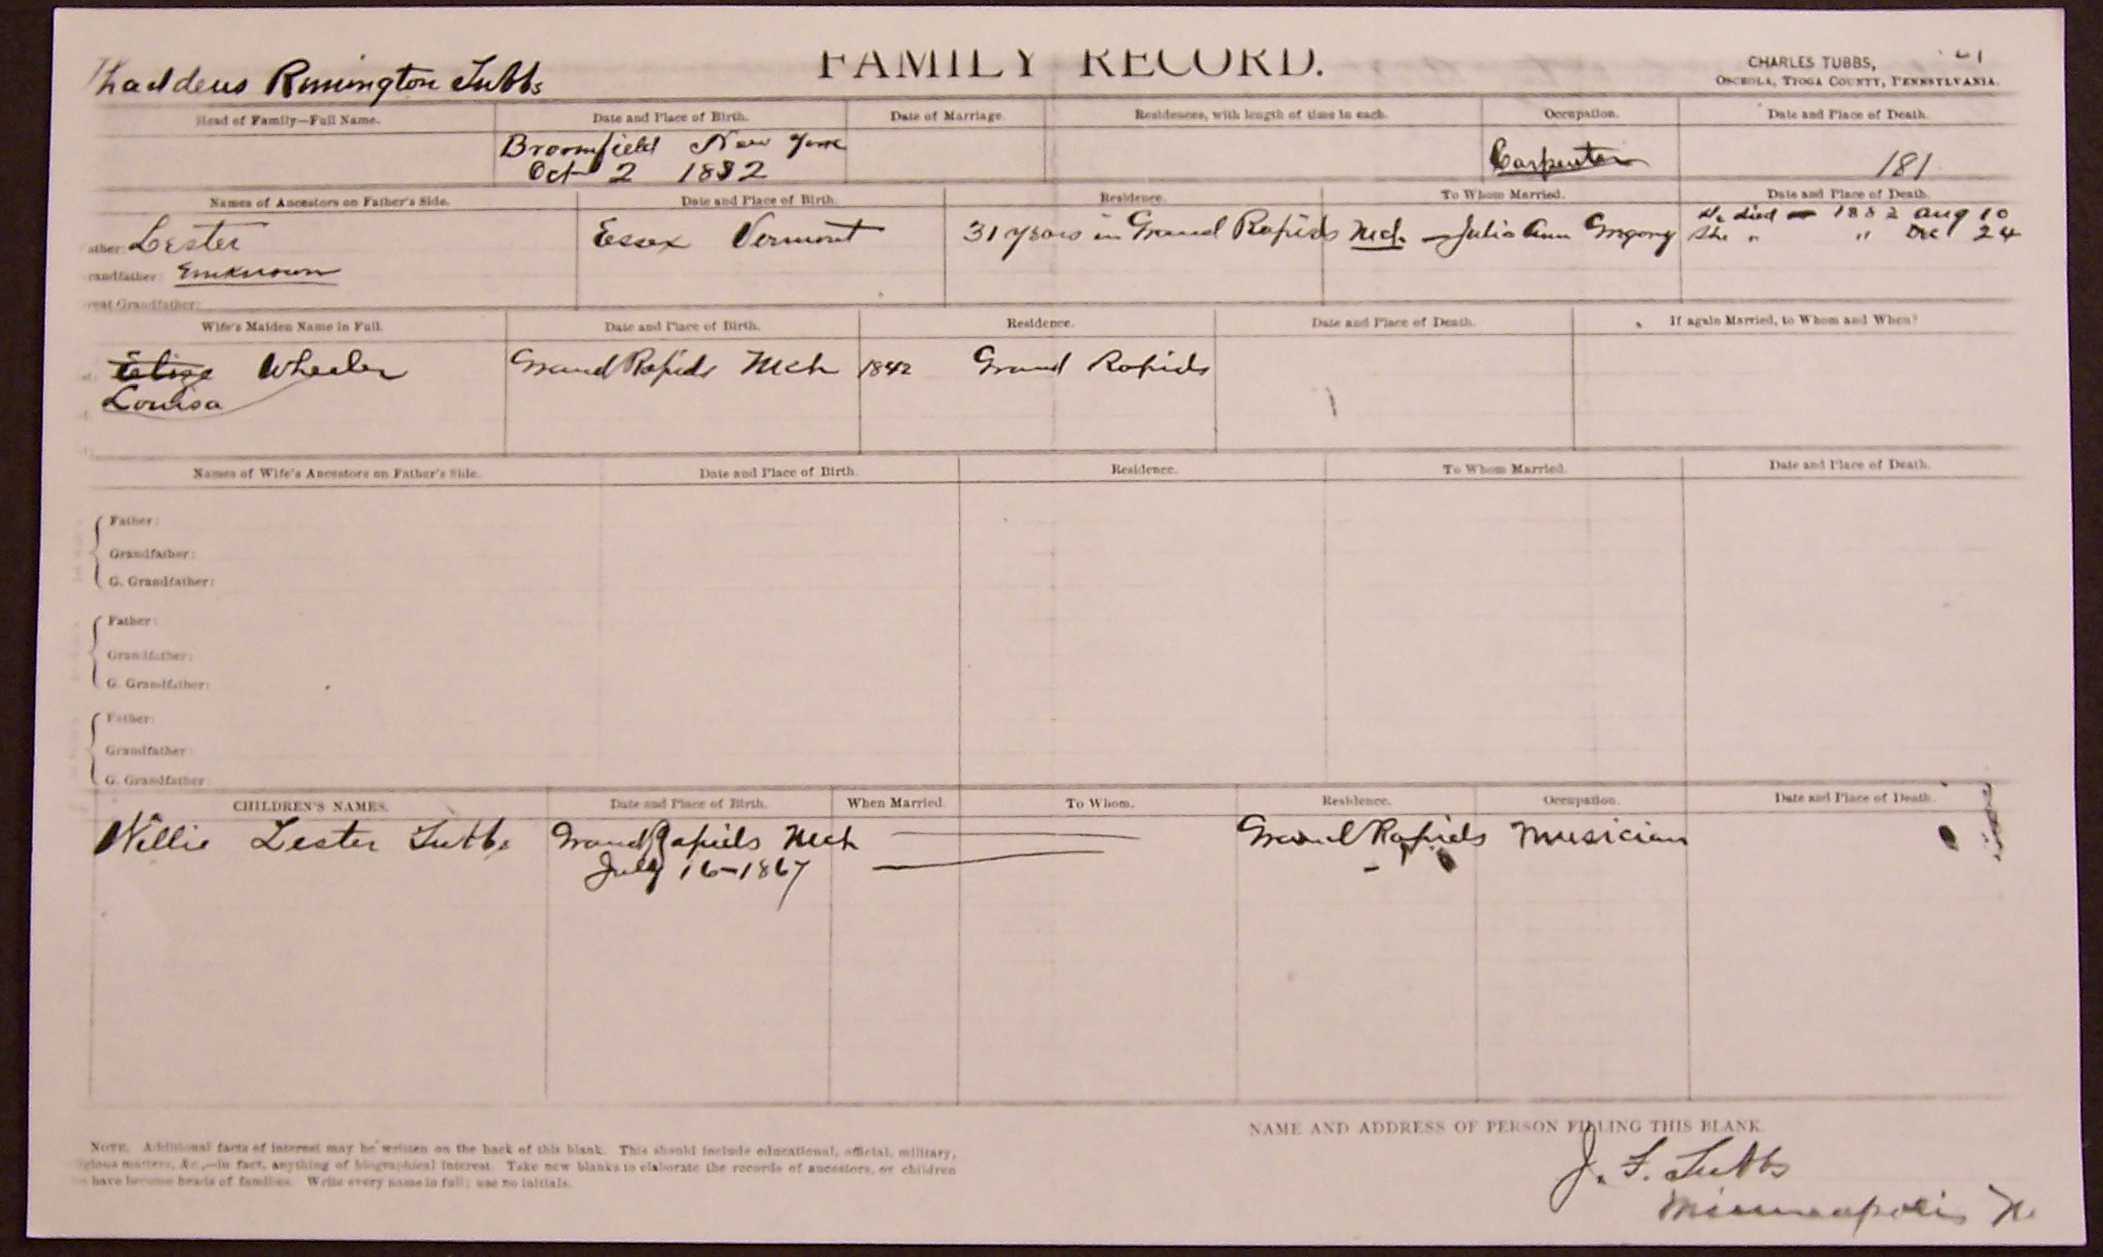 FAMILY RECORD.
CHARLES TUBBS,
OSCEOLA, TIOGA COUNTY, PENNSYLVANIA.
Thaddeus Rimington Tubbs
Head of Family—Full Name. Date and Place of Birth. Date of Marriage. Residences, with length of time in each. Occupation. Date and Place of Death.
Broomfield New York
Oct 2 1832
Carpenter
181
Names of Ancestors on Father's Side. Date and Place of Birth. Residence. To Whom Married. Date and Place of Death.
ather: Lester Essex Vermont 31 years in Grand Rapids Mch. — Julia Ann Gregory
He died 1882 Aug 10
She " " Dec 24
randfather: Unknown
reat Grandfather:
Wife's Maiden Name in Full. Date and Place of Birth. Residence. Date and Place of Death. If again Married, to Whom and When?
Wheeler Grand Rapids Mch 1842 Grand Rapids
Louisa
Names of Wife's Ancestors on Father's Side. Date and Place of Birth. Residence. To Whom Married. Date and Place of Death.
Father:
Grandfather:
G. Grandfather:
Father:
Grandfather:
G. Grandfather:
Father:
Grandfather:
G. Grandfather
CHILDREN'S NAMES. Date and Place of Birth. When Married. To Whom. Residence. Occupation. Date and Place of Death.
Willie Lester Tubbs Grand Rapids Mch Grand Rapids Musician
July 16-1867
NAME AND ADDRESS OF PERSON FILLING THIS BLANK.
NOTE. Additional facts of interest may be written on the back of this blank. This should include educational, official, military,
igious matters, &c.,—in fact, anything of biographical interest. Take new blanks to elaborate the records of ancestors, or children
have become heads of families. Write every name in full; use no initials.
J. F. Tubbs
Minneapolis